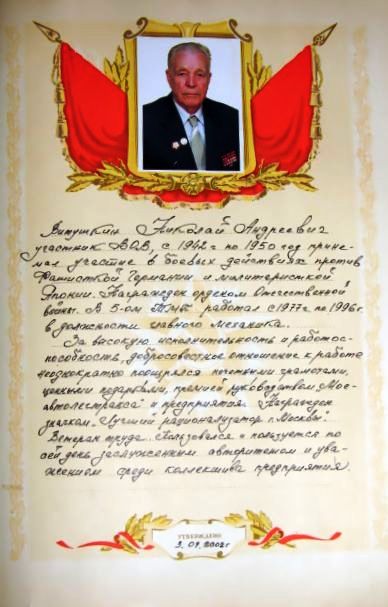 Витушкин Николай Андреевич
участник ВОВ, с 1942г по 1950 год прини-
мал участие в боевых действиях против
Фашисткой Германии и милитеристкой
Японии. Награжден орденом Отечественной
войны. В 5-ом работал с 1977г по 1996г.
в должности главного механика.
За высокую исполнительность и работос-
пособность, добросовестное отношение к работе
неоднократно поощрялся почетными грамотами,
ценными подарками, премией руководством „Мос-
автолегтранса" и предприятия. Награжден
значком „Лучший рационализатор г. Москвы".
Ветеран труда. Пользовался и пользуется по
сей день заслуженным авторитетом и ува-
жением среди коллектива предприятия.
УТВЕРЖДЕНО
3. 09. 2002г